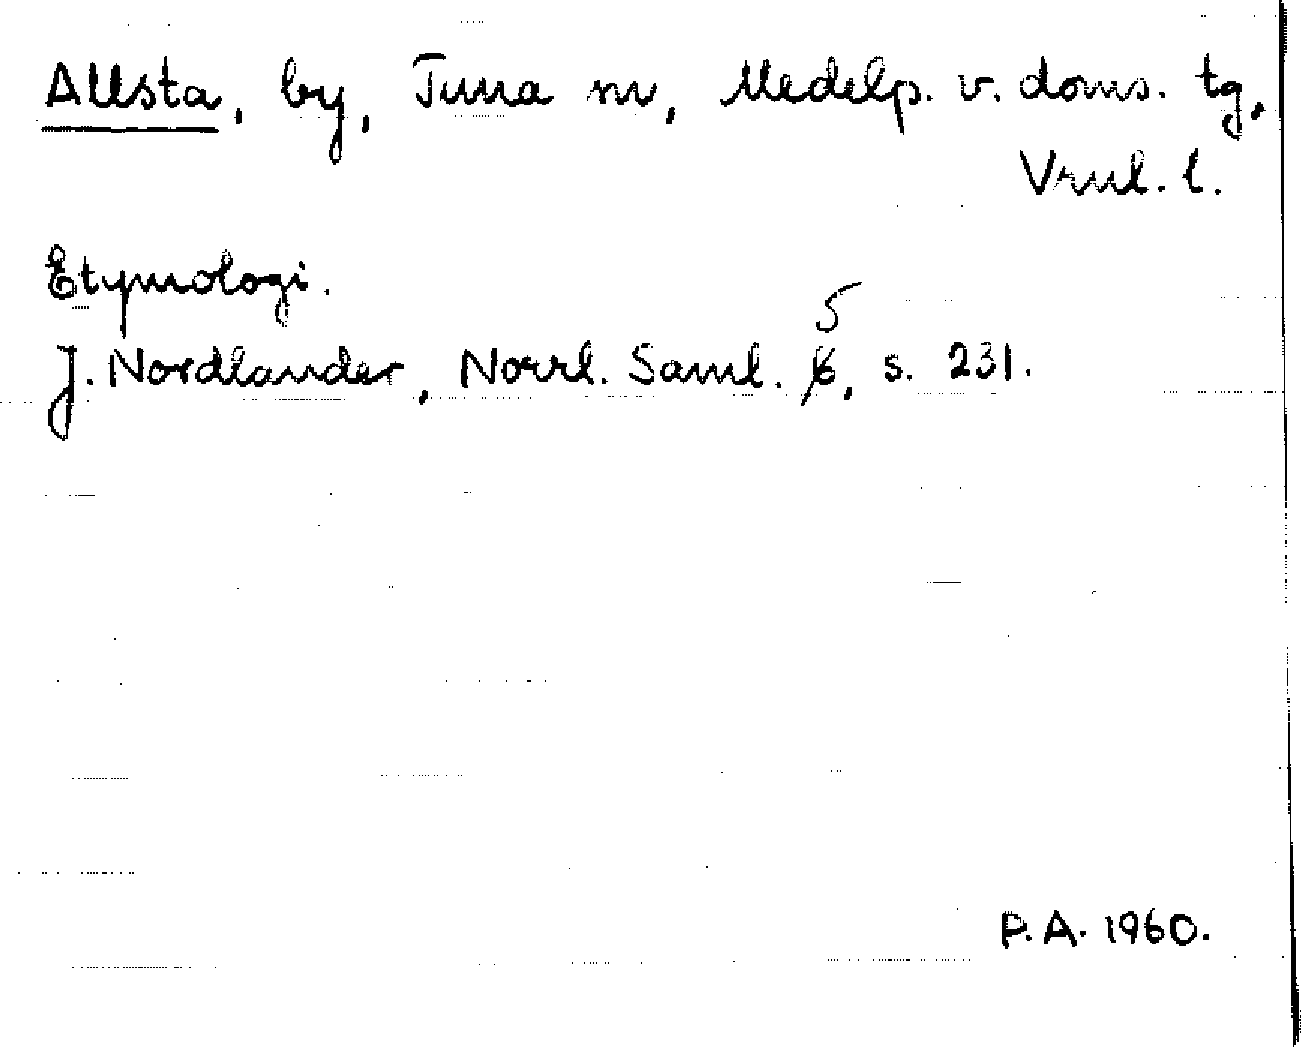 Allsta, by, Tuna sn, Medelp. v. doms. tg,
Vrnl. l.
Etymologi.
J. Nordlander, Norrl. Saml. 5, s. 231.
P.A. 1960.